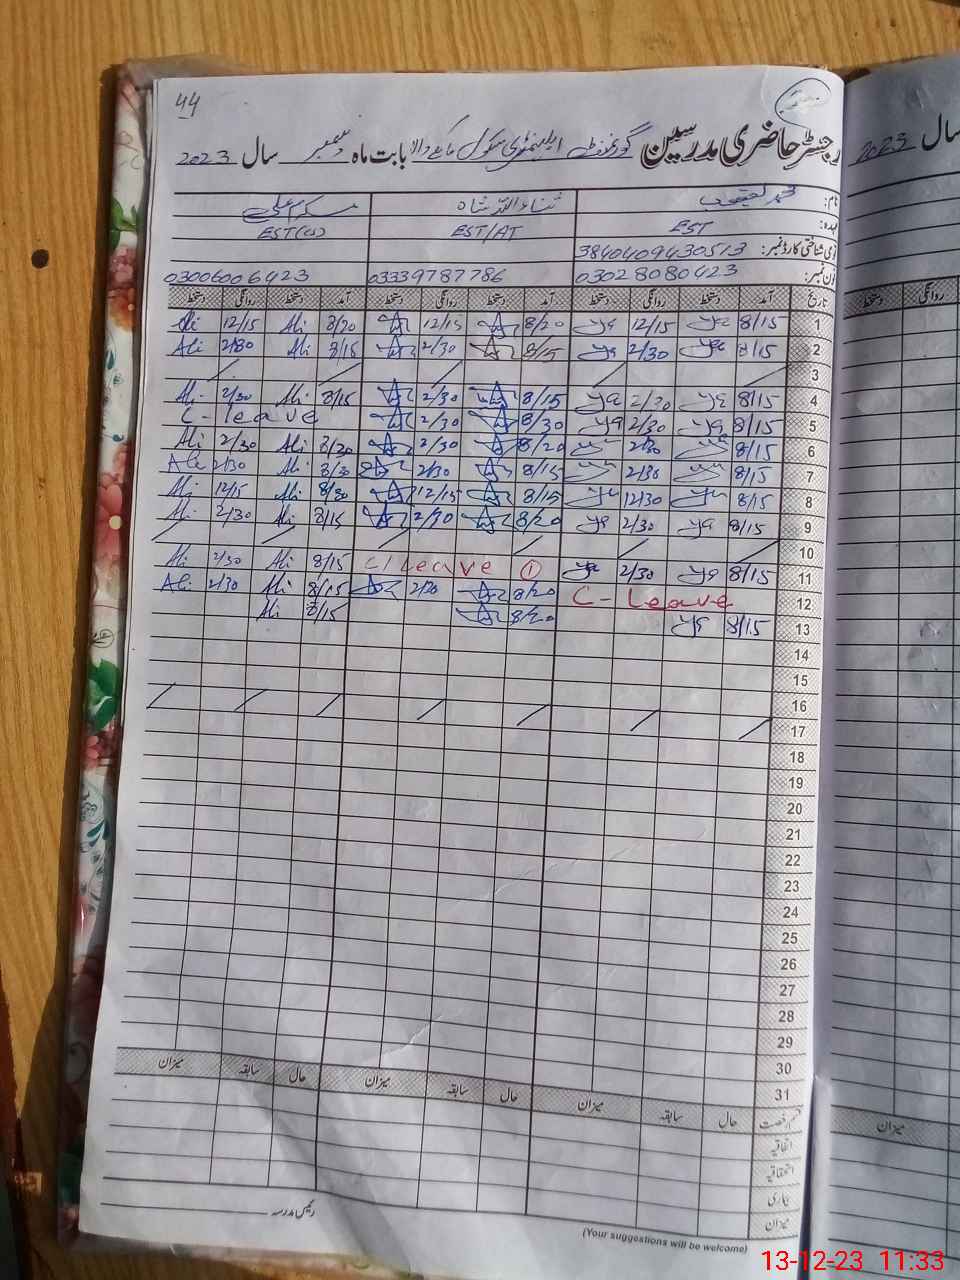 44
رجسٹر حاضری مدرسین گورنمنٹ ایلیمنٹری سکول بابت ماہ دسمبر سال 2023
سال 2023
نام: محمد یعقوب ثناء اللہ شاہ
عہدہ: EST EST/AT EST(CS)
قومی شناختی کارڈ نمبر: 3840409430513
فون نمبر: 03028080423 03339787786 03006006423
تاریخ آمد دستخط روانگی دستخط آمد دستخط روانگی دستخط آمد دستخط روانگی دستخط
روانگی دستخط
1 8/15 12/15 8/20 12/15 8/20 Ali 12/15 Ali
2 8/15 2/30 8/15 2/30 8/15 Ali 2/30 Ali
3
4 8/15 2/30 8/15 2/30 8/15 Ali 2/30 Ali
5 8/15 2/30 8/30 2/30 C-leave
6 8/15 2/30 8/20 2/30 8/20 Ali 2/30 Ali
7 8/15 2/30 8/15 2/30 8/20 Ali 2/30 Ali
8 8/15 12/30 8/15 12/15 8/20 Ali 12/15 Ali
9 8/15 2/30 8/20 2/30 8/15 Ali 2/30 Ali
10
11 8/15 2/30 C/Leave ① 8/15 Ali 2/30 Ali
12 C-Leave 8/20 2/20 8/15 Ali 2/30 Ali
13 8/15 8/20 8/15 Ali
14
15
16
17
18
19
20
21
22
23
24
25
26
27
28
29
30
31
قسم رخصت حال سابقہ میزان حال سابقہ میزان حال سابقہ میزان
میزان
اتفاقیہ
استحقاقیہ
بیماری
میزان
رئیس مدرسہ
(Your suggestions will be welcome)
13-12-23 11:33